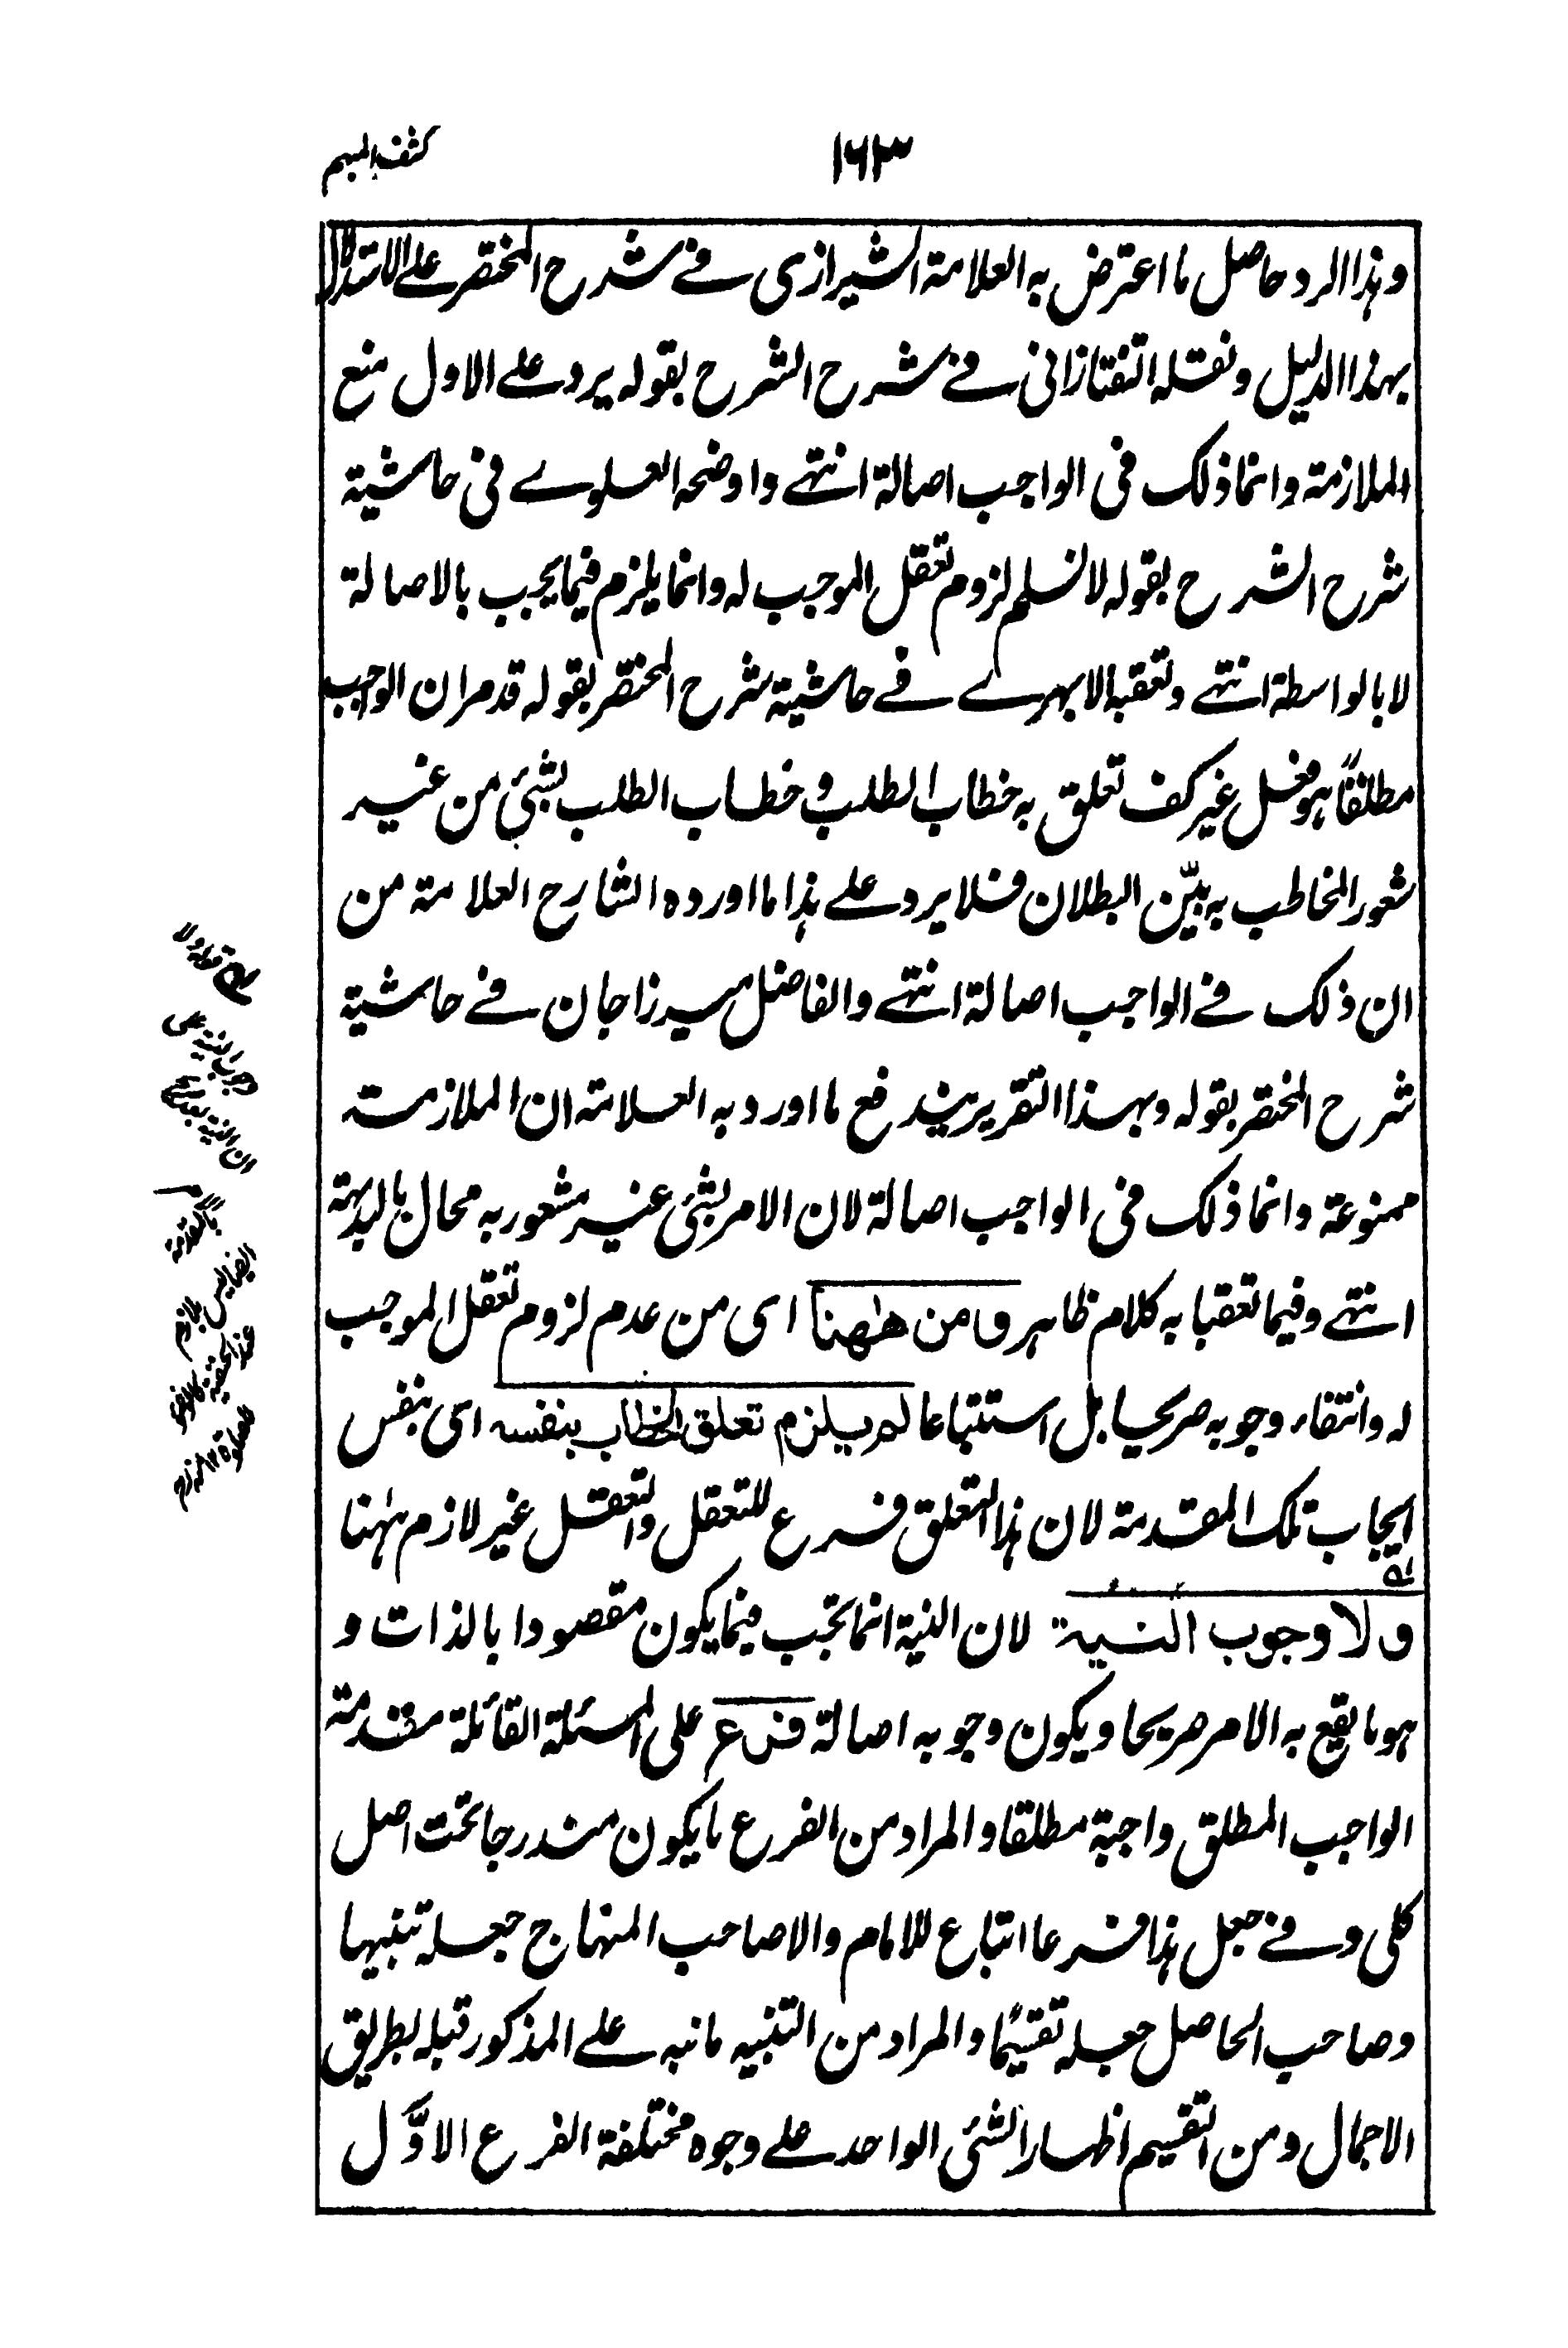 ١٦٣
كشف المبهم
وهذا الرد حاصل ما اعترض به العلامة الشيرازى فے شرح المختصر علے الاستدلال
بهذا الدليل ونقله التفتازانى فے شرح الشرح بقوله يرد علے الاول منع
الملازمة وانما ذلك فى الواجب اصالة انتهے واوضحه العلوے فى حاشية
شرح الشرح بقوله لا نسلم لزوم تعقل الموجب له وانما يلزم فيما يجب بالاصالة
لا بالواسطة انتهے وتعقبه الابهرے فے حاشية شرح المختصر بقوله قد مر ان الواجب
مطلقاً هو فعل غير كف تعلق به خطاب الطلب و خطاب الطلب بشئ من غير
شعور المخاطب به بيّن البطلان فلا يرد علے هذا ما اورده الشارح العلامة من
ان ذلك فے الواجب اصالة انتهے والفاضل ميرزا جان فے حاشية
شرح المختصر بقوله وبهذا التقرير يندفع ما اورد به العلامة ان الملازمة
ممنوعة وانما ذلك فى الواجب اصالة لان الامر بشئ غير مشعور به محال بالبديهة
انتهے وفيما تعقبا به كلام ظاهر ومن هٰهنا اى من عدم لزوم تعقل الموجب
له وانتفاء وجوبه صريحا بل استتباعا لم يلزم تعلق الخطاب بنفسه اى بنفس
ايجاب تلك المقدمة لان هذا التعلق فرع للتعقل والتعقل غير لازم هٰهنا
ولا وجوب النية لان النية انما تجب فيما يكون مقصودا بالذات و
هو ما يقع به الامر صريحا ويكون وجوبه اصالة فرع على المسئلة القائلة مقدمة
الواجب المطلق واجبة مطلقا والمراد من الفرع ما يكون مندرجا تحت اصل
كلى وفے جعل هذا فرعا اتباع للامام والا صاحب المنهاج جعله تنبيها
وصاحب الحاصل جعله تقسيمًا والمراد من التنبيه ما نبه علے المذكور قبله بطريق
الاجمال ومن التقسيم اظهار الشئ الواحد علے وجوه مختلفة الفرع الاوّل
قوله ولا
وجوب النية
ان النية